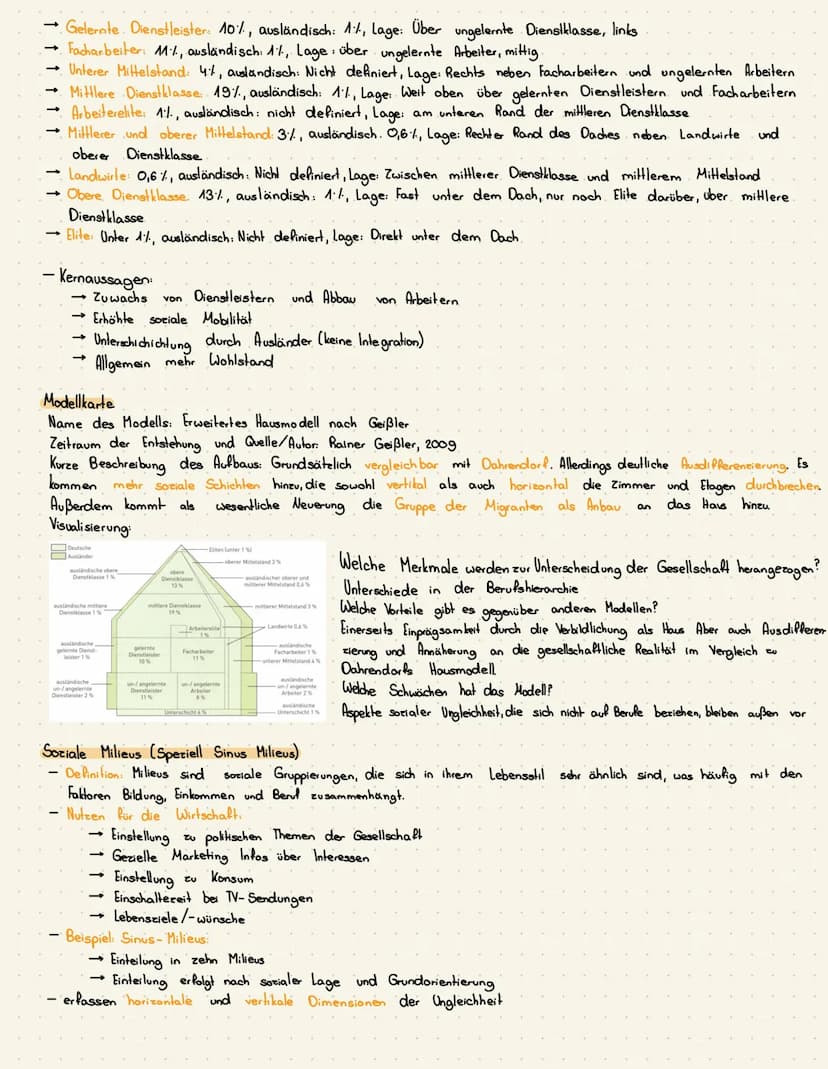 → Gelernte Dienstleister: 10%, ausländisch: 1%, Lage: Über ungelernte Dienstklasse, links
→ Facharbeiter: 11%, ausländisch: 1%, Lage: über ungelernte Arbeiter, mittig
→ Unterer Mittelstand: 4%, ausländisch: Nicht definiert, Lage: Rechts neben Facharbeitern und ungelernten Arbeitern
→ Mittlere Dienstklasse: 19%, ausländisch: 1%, Lage: Weit oben über gelernten Dienstleistern und Facharbeitern
→ Arbeiterelite: 1%, ausländisch: nicht definiert, Lage: am unteren Rand der mittleren Dienstklasse
→ Mittlerer und oberer Mittelstand: 3%, ausländisch: 0,6%, Lage: Rechter Rand des Daches neben Landwirte und
oberer Dienstklasse
→ Landwirte: 0,6%, ausländisch: Nicht definiert, Lage: Zwischen mittlerer Dienstklasse und mittlerem Mittelstand
→ Obere Dienstklasse: 13%, ausländisch: 1%, Lage: Fast unter dem Dach, nur noch Elite darüber, über mittlere
Dienstklasse
→ Elite: Unter 1%, ausländisch: Nicht definiert, Lage: Direkt unter dem Dach
- Kernaussagen:
→ Zuwachs von Dienstleistern und Abbau von Arbeitern
→ Erhöhte soziale Mobilität
→ Unterschichtung durch Ausländer (keine Integration)
→ Allgemein mehr Wohlstand
Modellkarte
Name des Modells: Erweitertes Hausmodell nach Geißler
Zeitraum der Entstehung und Quelle/Autor: Rainer Geißler, 2009
Kurze Beschreibung des Aufbaus: Grundsätzlich vergleichbar mit Dahrendorf. Allerdings deutliche Ausdifferenzierung. Es
kommen mehr soziale Schichten hinzu, die sowohl vertikal als auch horizontal die Zimmer und Etagen durchbrechen.
Außerdem kommt als wesentliche Neuerung die Gruppe der Migranten als Anbau an das Haus hinzu.
Visualisierung:
Deutsche
Ausländer
Eliten (unter 1 %)
oberer Mittelstand 3 %
ausländische obere
Dienstklasse 1 %
obere
Dienstklasse
13 %
ausländischer oberer und
mittlerer Mittelstand 0,6 %
ausländische mittlere
Dienstklasse 1 %
mittlere Dienstklasse
19 %
mittlerer Mittelstand 3 %
Arbeiterelite
1 %
Landwirte 0,6 %
ausländische
gelernte Dienst-
leister 1 %
gelernte
Dienstleister
10 %
Facharbeiter
11 %
ausländische
Facharbeiter 1 %
unterer Mittelstand 4 %
ausländische
un-/ angelernte
Dienstleister 2 %
un-/ angelernte
Dienstleister
11 %
un-/ angelernte
Arbeiter
8 %
ausländische
un-/ angelernte
Arbeiter 2 %
Unterschicht 6 %
ausländische
Unterschicht 1 %
Welche Merkmale werden zur Unterscheidung der Gesellschaft herangezogen?
Unterschiede in der Berufshierarchie
Welche Vorteile gibt es gegenüber anderen Modellen?
Einerseits Einprägsamkeit durch die Verbildlichung als Haus Aber auch Ausdifferen-
zierung und Annäherung an die gesellschaftliche Realität im Vergleich zu
Dahrendorfs Hausmodell
Welche Schwächen hat das Modell?
Aspekte sozialer Ungleichheit, die sich nicht auf Berufe beziehen, bleiben außen vor
Soziale Milieus (Speziell Sinus Milieus)
- Definition: Milieus sind soziale Gruppierungen, die sich in ihrem Lebensstil sehr ähnlich sind, was häufig mit den
Faktoren Bildung, Einkommen und Beruf zusammenhängt.
- Nutzen für die Wirtschaft:
→ Einstellung zu politischen Themen der Gesellschaft
→ Gezielte Marketing Infos über Interessen
→ Einstellung zu Konsum
→ Einschaltezeit bei TV-Sendungen
→ Lebensziele/-wünsche
- Beispiel: Sinus-Milieus:
→ Einteilung in zehn Milieus
→ Einteilung erfolgt nach sozialer Lage und Grundorientierung
- erfassen horizontale und vertikale Dimensionen der Ungleichheit